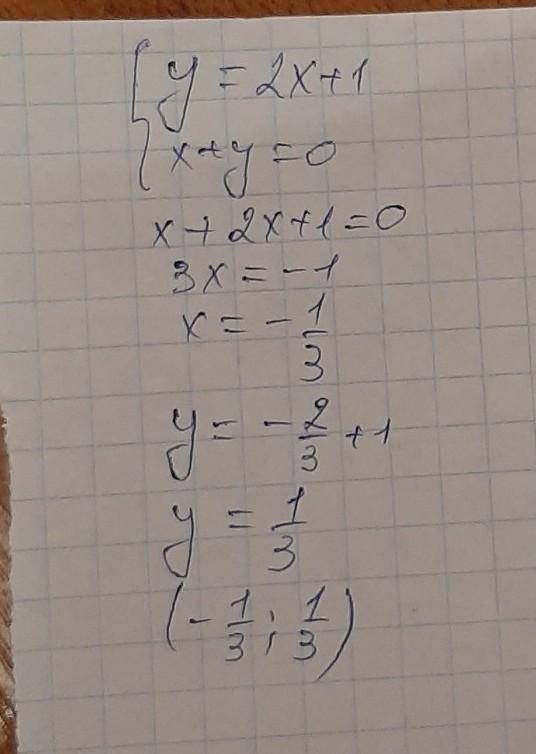 { y = 2x+1
x+y=0
x+2x+1=0
3x=-1
x=-1/3
y=-2/3+1
y=1/3
(-1/3; 1/3)